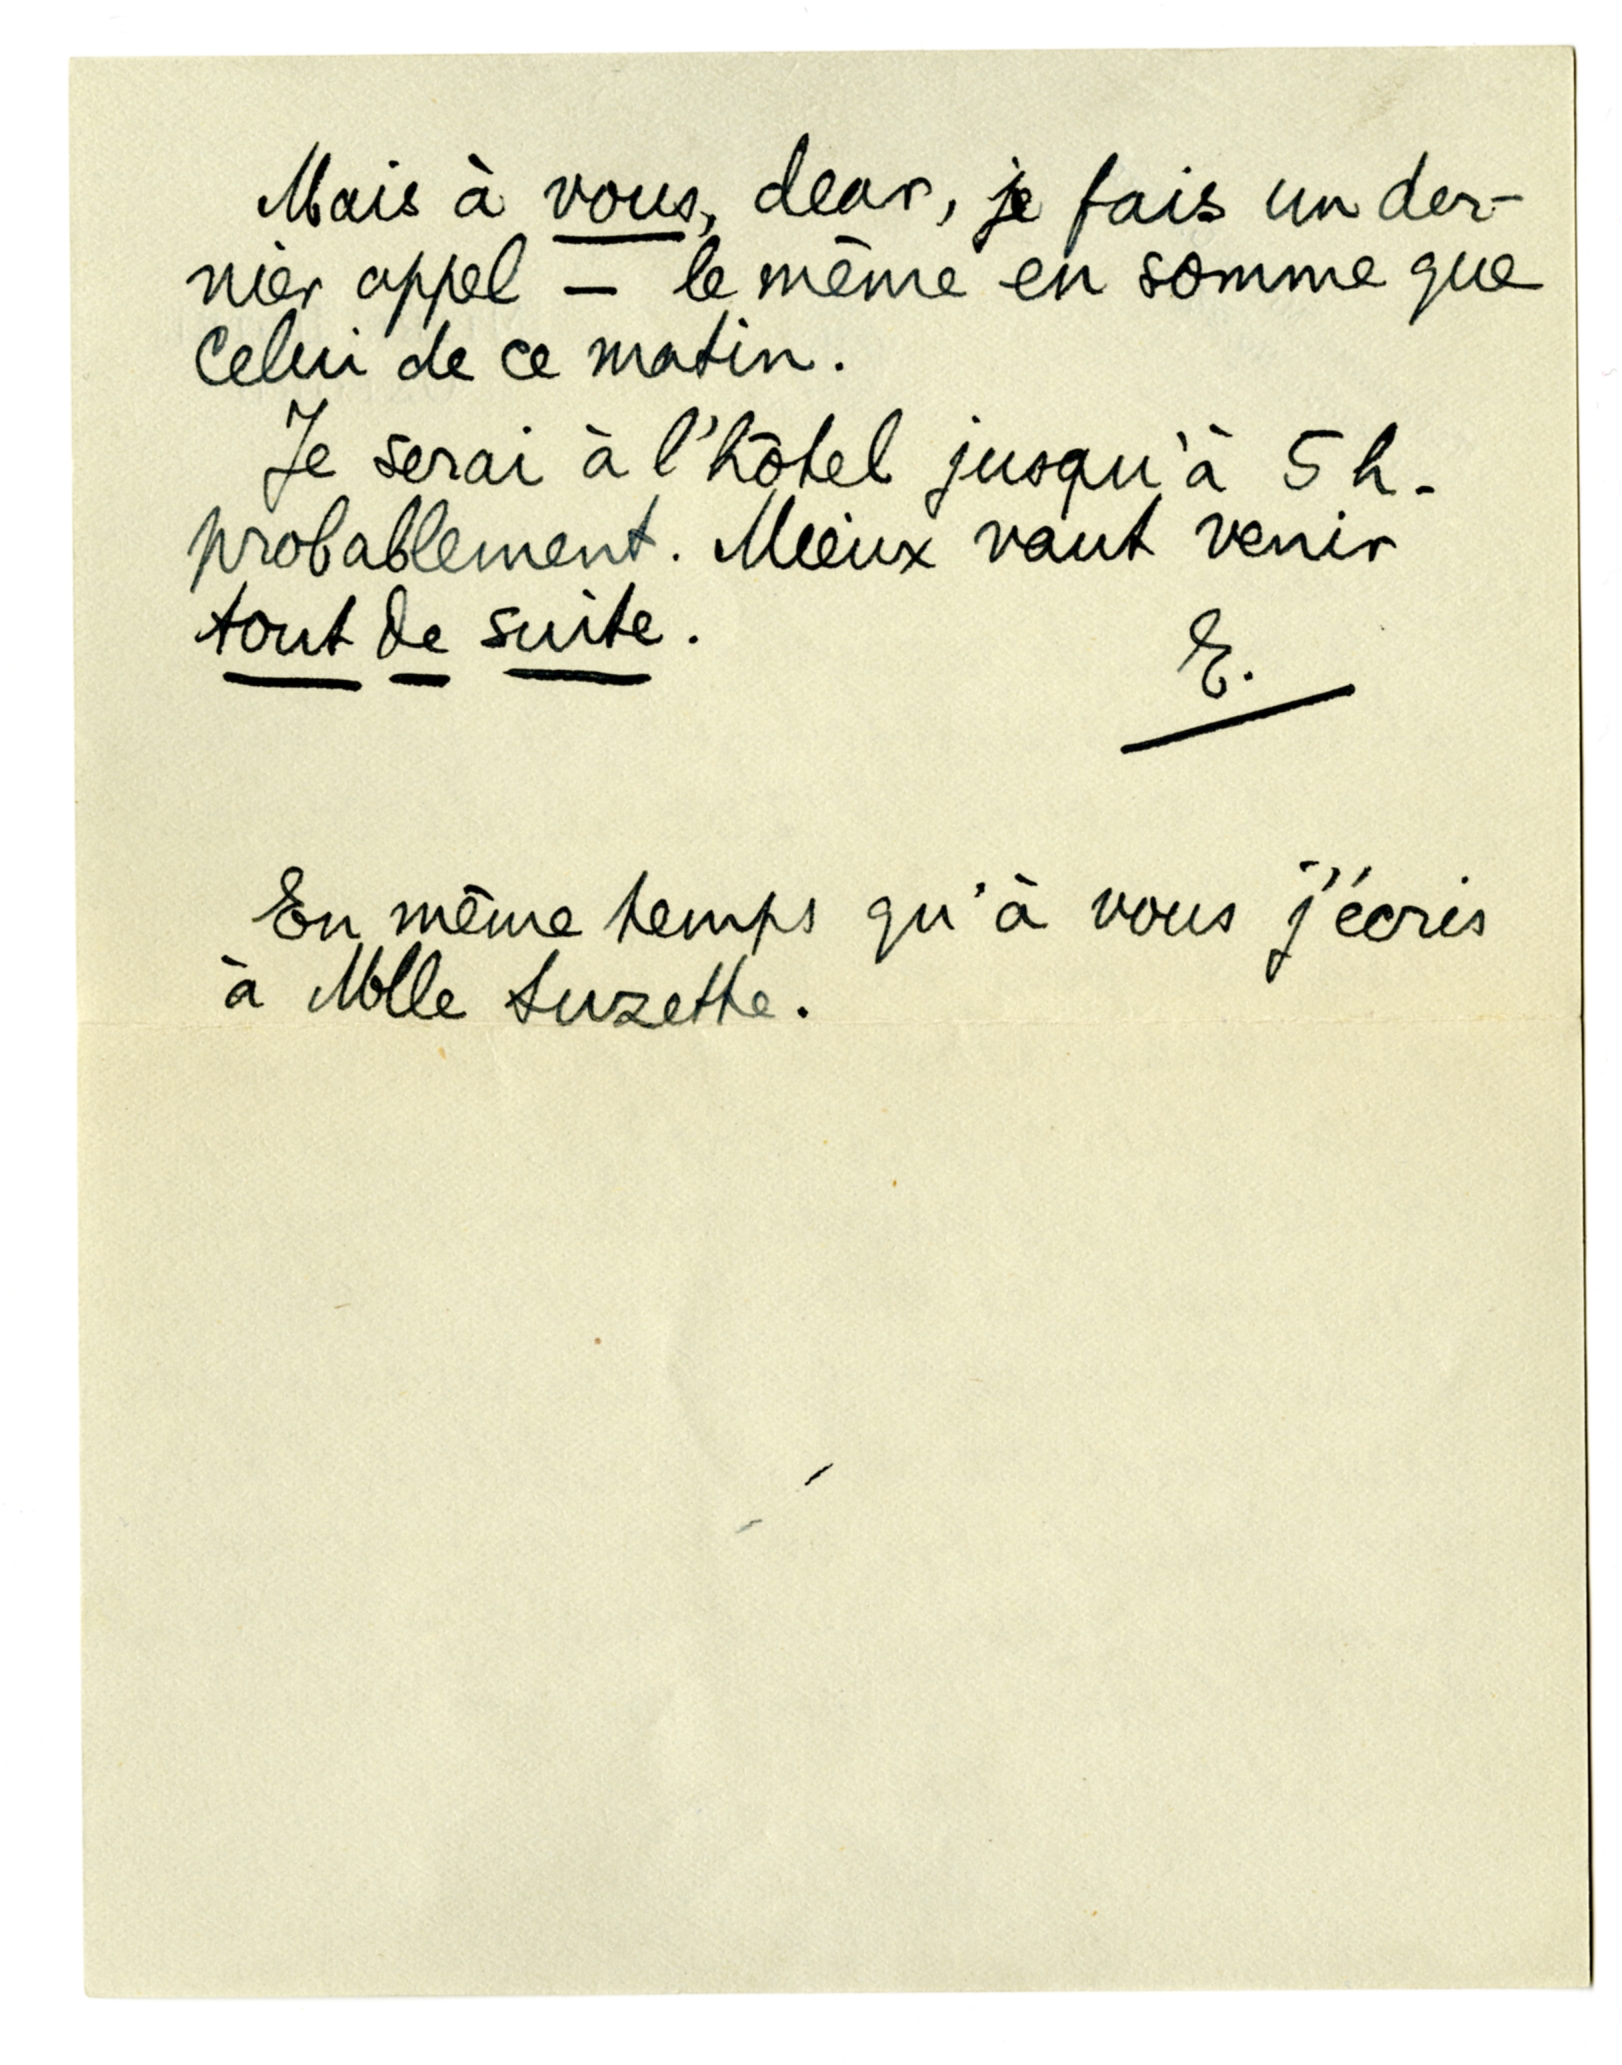 Mais à vous, dear, je fais un der-
nier appel — le même en somme que
celui de ce matin.
Je serai à l'hôtel jusqu'à 5 h.
probablement. Mieux vaut venir
tout de suite.
E.
En même temps qu'à vous j'écris
à Mlle Suzette.